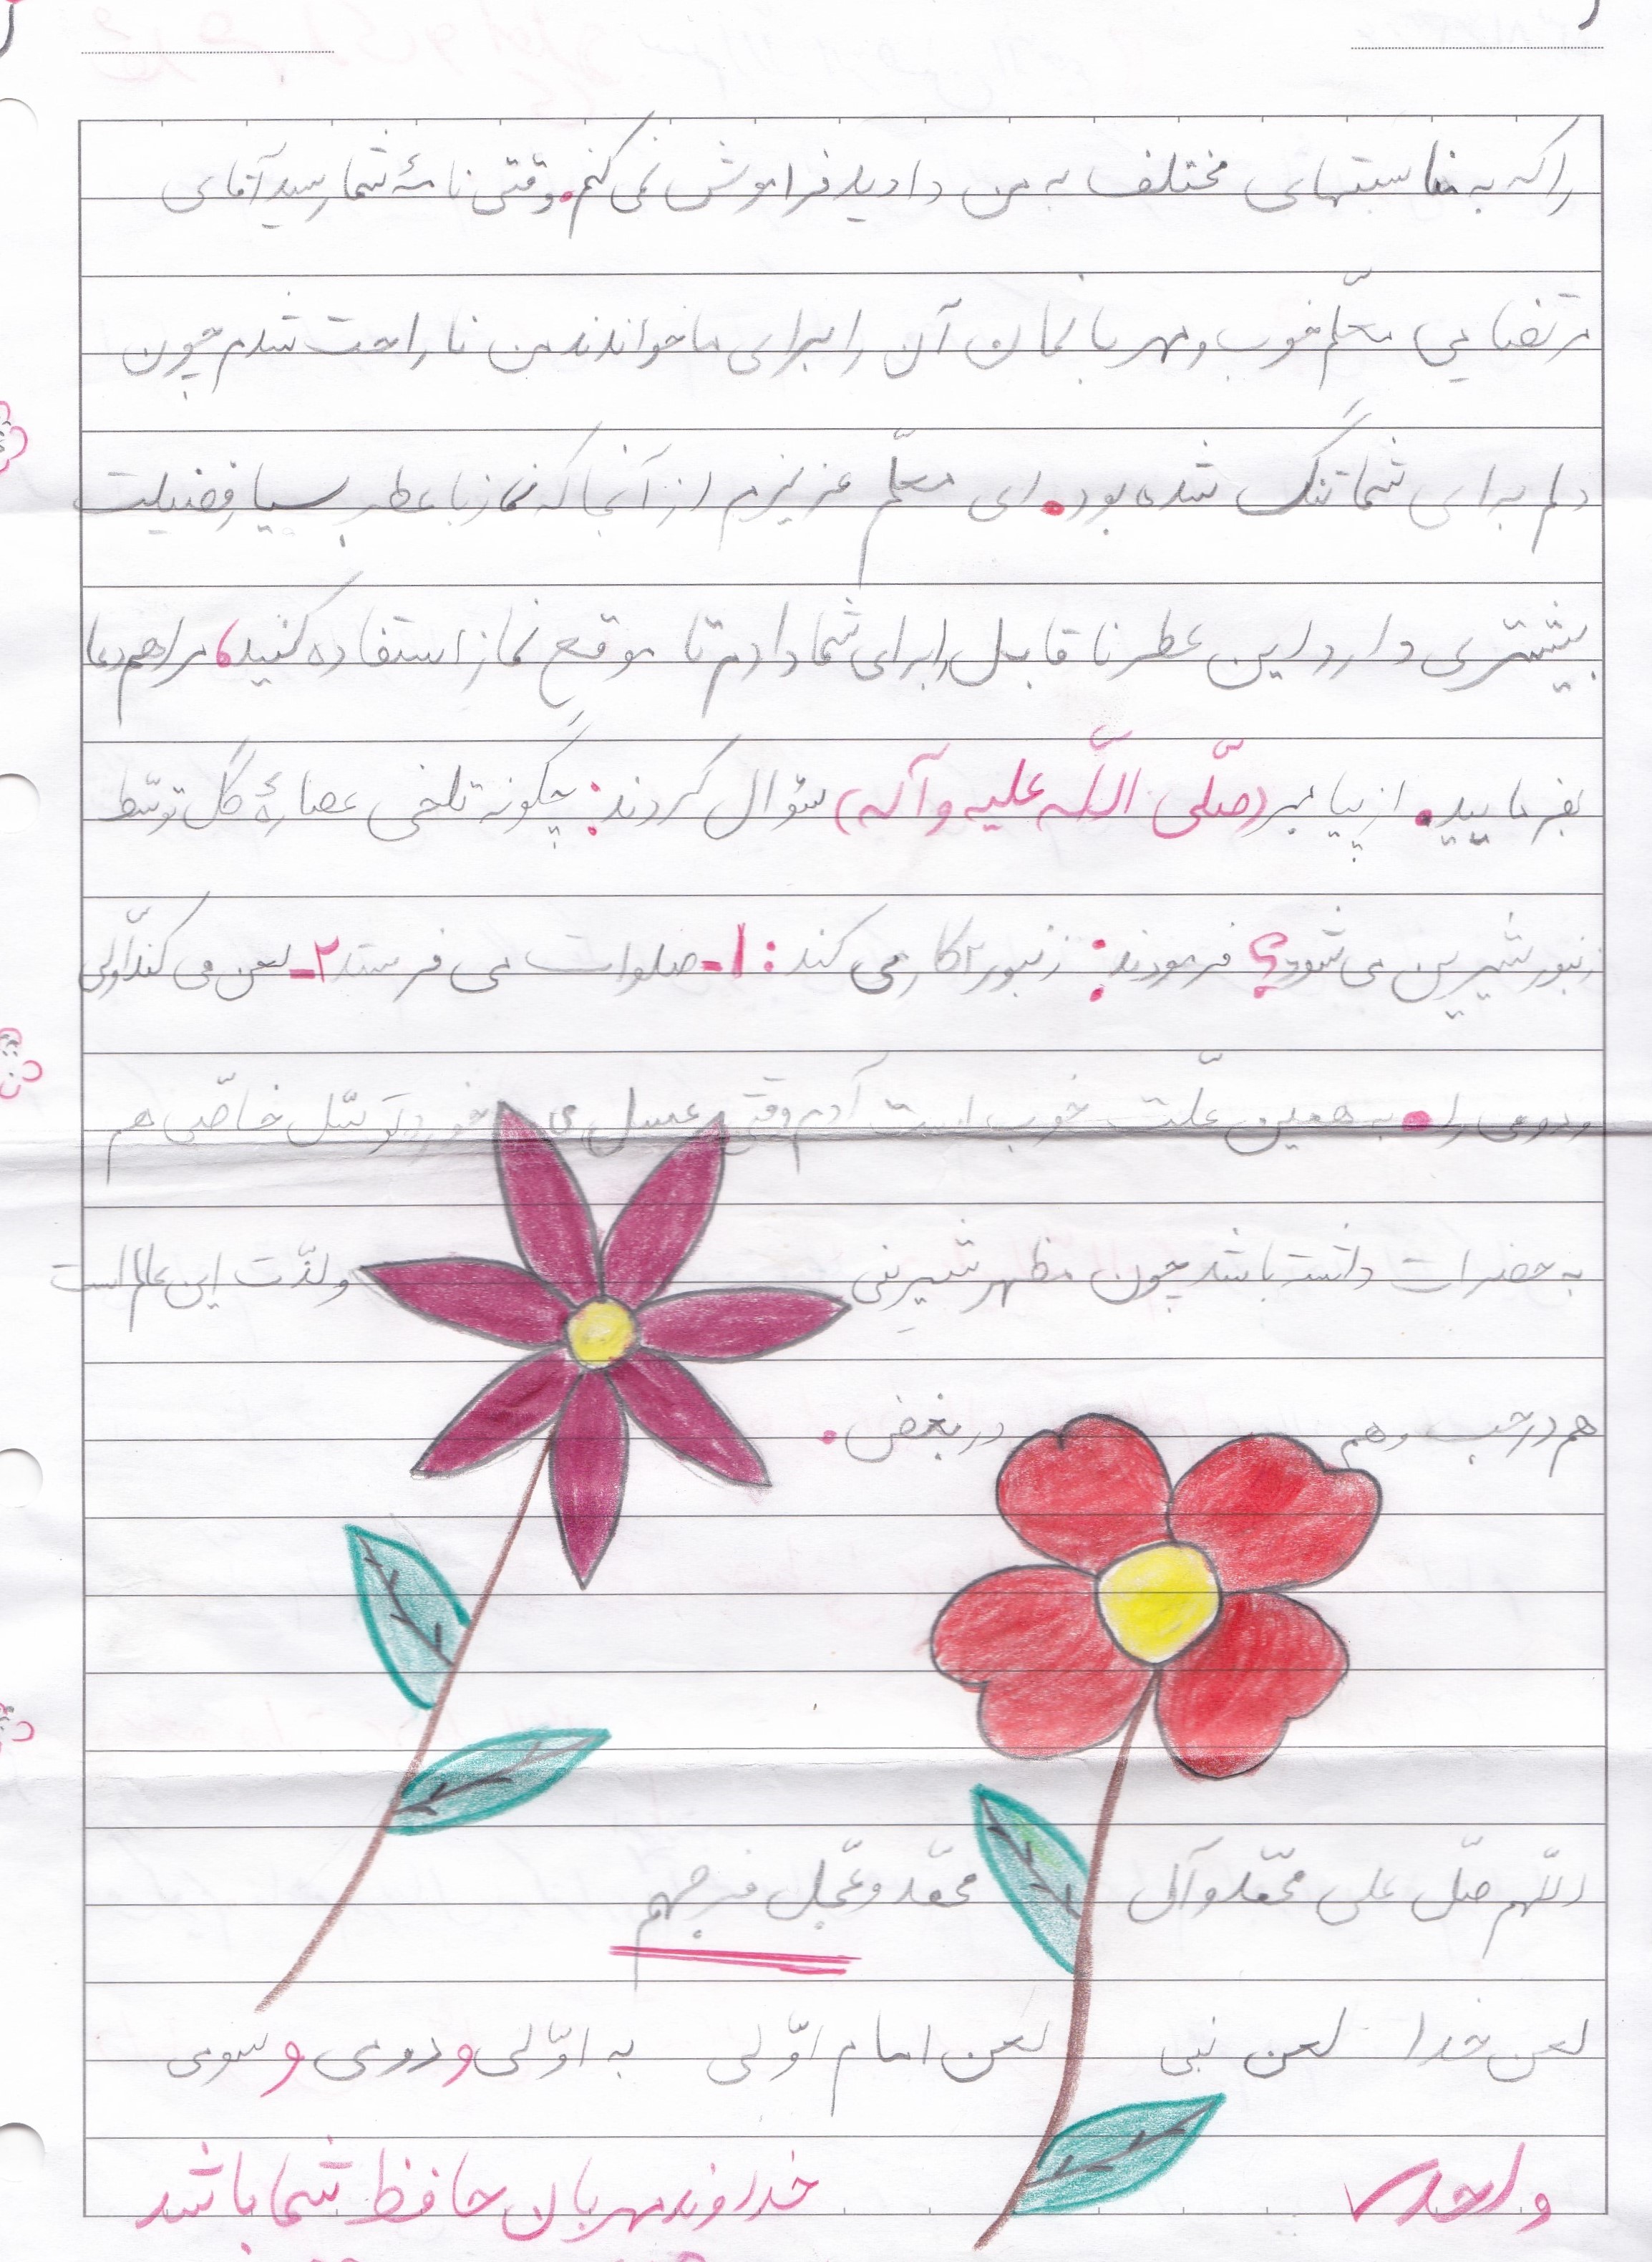 را که به مناسبتهای مختلف به من دادید فراموش نمی کنم. وقتی نامهٔ شما رسید آقای
مرتضایی معلّم خوب و مهربانمان آن را برای ما خواندند من ناراحت شدم چون
دلم برای شما تنگ شده بود. ای معلّم عزیزم از آنجا که نماز با عطر بسیار فضیلت
بیشتری دارد این عطر ناقابل را برای شما دادم تا موقع نماز استفاده کنید، مرا هم دعا
بفرمایید. از پیامبر (صلّی اللّه علیه و آله) سؤال کردند: چگونه تلخی عصارهٔ گل توسّط
زنبور شیرین می شود؟ فرمودند: زنبور ۲ کار می کند: ۱- صلوات می فرستد ۲- لعن می کند اوّلی
و دومی را. به همین علّت خوب است آدم وقتی عسل می خورد توسّل خاصّی هم
به حضرات داشته باشد چون مظهر شیرینی و لذّت این عالم است
هم در حب و هم در بغض.
اللّهم صلّ علی محمّد و آل محمّد و عجّل فرجهم
لعن خدا لعن نبی لعن امام اوّلی به اوّلی و دومی و سومی
خداوند مهربان حافظ شما باشد